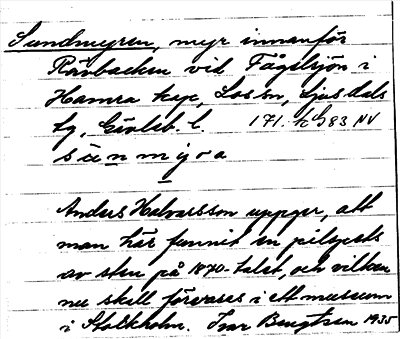 Sundmyren, myr innanför
Rävbacken vid Fågelsjön i
Hamra kap, Los sn, Ljusdals
tg, Gävleb. l. 171. h G 83 NV
s ü n m y r a
Anders Halvarsson uppger, att
man här funnit en pilspets
av sten på 1870-talet, och vilken
nu skall förvaras i ett museum
i Stockholm. Ivar Bengtsson 1935